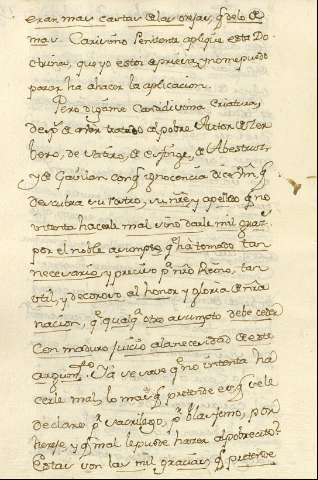 eran mas cartas de las orejas, q̃ de lo de
mas. Carissimo Penseñta aplique esta Do-
ctrina, que yo estoi de priesa, y no me puedo
parar ha ahacer la aplicacion.
Pero digame Caradissima Criatura,
de de tratado al pobre Autor de Zer-
bero, de Satiro, de esfinge, de Abestruz
y de Gavilan con q̃ ignocencia dice Vm. q̃
descubra su rostro, su nr̃e y apellido q̃ no
intenta hacerle mal, sino darle mil gras.
por el noble assumpto q̃ hà tomado tan
necesario, y preciso pª. nr̃o Reino, tan
util, y decoroso al honor y gloria de nr̃a
nacion, q̃ qualqª. otro assumpto debe ceder
con maduro juicio a la necesidad de este
argumto. Yà se save q̃ no intenta ha
cerle mal, lo mas q̃ pretende es q̃ se le
declare pr. sacrilego, pr. blasfemo, por
herege, y q̃ mal le puede hazer al pobrecito?
Estas son las mil gracias, q̃ pretende